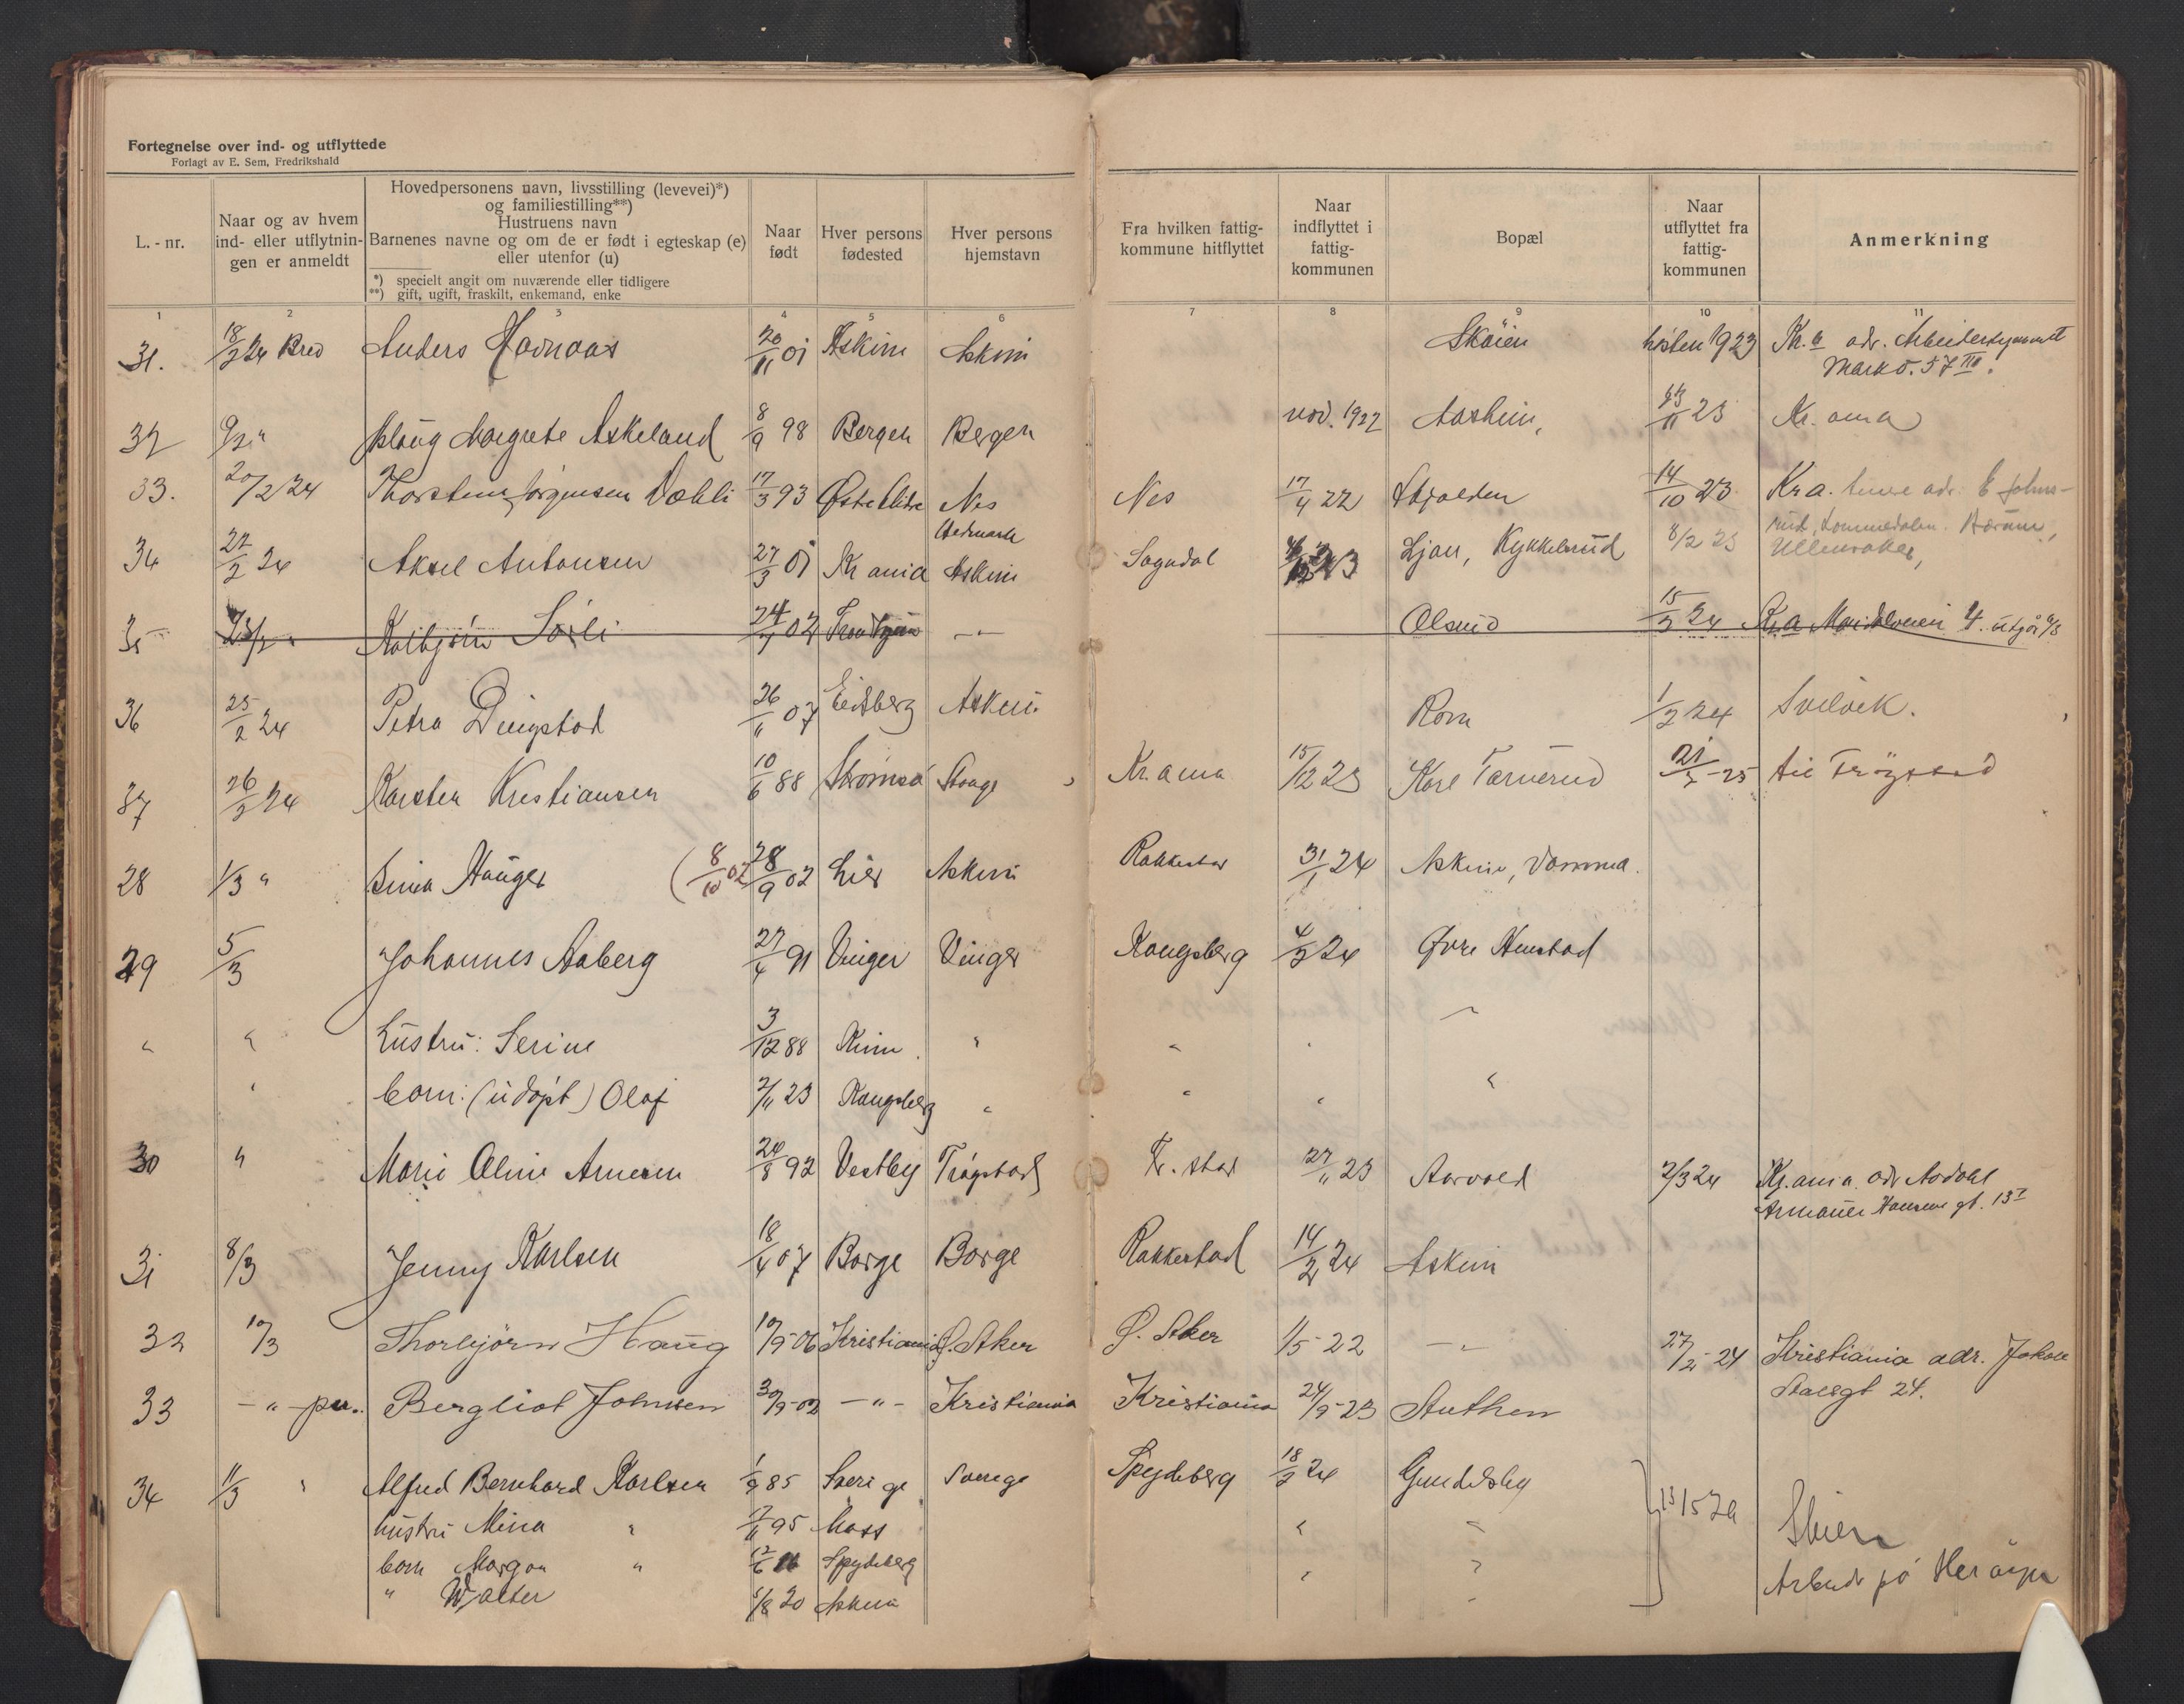 Fortegnelse over ind- og utflyttede
Forlagt av E. Sem, Fredrikshald
L.-nr.
Naar og av hvem ind- eller utflytningen er anmeldt
Hovedpersonens navn, livsstilling (levevei)*)
og familiestilling**)
Hustruens navn
Barnenes navne og om de er født i egteskap (e)
eller utenfor (u)
*) specielt angit om nuværende eller tidligere
**) gift, ugift, fraskilt, enkemand, enke
Naar født
Hver persons fødested
Hver persons hjemstavn
Fra hvilken fattigkommune hitflyttet
Naar indflyttet i fattigkommunen
Bopæl
Naar utflyttet fra fattigkommunen
Anmerkning
1 2 3 4 5 6 7 8 9 10 11
31. 18/2 24 Brev Anders Havnaas 20/11 01 Askim Askim Sköien høsten 1923 Kr.a adr.
Markv. 57 III.
32 9/2 " Aslaug Margrete Askeland 8/9 98 Bergen Bergen nov. 1922 Aasheim, 23/11 23 Kr. ania
33. 20/2 24 Thorstein Jørgensen Dæhli 17/3 93 Østre Slidre Nes Nes 17/4 22 Skjolden 14/10 23 Kr a. senere adr. E Johns-
Hedmark
rud, Lommedalen. Bærum,
34 22/2 24 Aksel Antonsen 27/3 01 Kr ania Askim Sogndal Ljan, Kykkelsrud 8/2 23 Ullensaker,
35 23/2 " Kolbjörn Sörli 24/7 02 Trondhjem -"- Olsrud 15/2 24 Kr.a Maridalsveien 4. utgår
36 25/2 24 Petra Dingstad 26/11 07 Eidsberg Askim Rom 1/2 24 Svelvik.
37 26/2 24 Karsten Kristiansen 10/6 88 Stange Kr. ania 15/12 23 Karl Tarverud 21/7-25 til Trögstad
28 1/3 " Hauger (8/10 02 28/9 02 Lier Askim Rakkestad 31/1 24 Askim, Vamma.
29 5/3 Johannes Aaberg 27/4 91 Vinger Vinger Kongsberg 4/2 24 Øvre Henstad
" " hustru: Serine 3/12 88 " " " "
" barn: (udöpt) Olaf 2/11 23 Kongsberg " " " "
30 " Marie Oline Arnesen 24/8 92 Vestby Trögstad Fr. stad 27/11 23 Aarvold 2/3 24 Kr.ania adr Aadahl
Armauer Hansens gt. 13 I
31 8/3 Jenny Karlsen 18/4 07 Borge Borge Rakkestad 14/2 24 Askim
32 10/3 Thorbjörn Haug 10/9-06 Kristiania Ø. Aker Ø. Aker 1/5-22 -"- 27/2-24 Kristiania adr. Jakob
Aalsgt 24.
33 -"- pr. Bergliot Johnsen 30/9-02 -"- Kristiania Kristiania 24/9-23 Authen
34 11/3 " Alfred Bernhard Karlsen 1/9 85 Sverige Sverige Spydeberg 18/2 24 Gundelsby
hustru Mina " 7/11 95 Moss " " 13/5 24 Skien
barn Margon " 12/6 16 Spydeberg " " Arbeide på Herøya
" Walter 5/8 20 Askim "